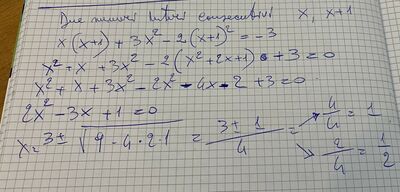 Due numeri interi consecutivi x, x+1
x(x+1) + 3x² - 2(x+1)² = -3
x² + x + 3x² - 2(x² + 2x + 1) + 3 = 0
x² + x + 3x² - 2x² - 4x - 2 + 3 = 0
2x² - 3x + 1 = 0
x = 3 ± √9 - 4 · 2 · 1 = 3 ± 1 / 4 = 4/4 = 1
2/4 = 1/2